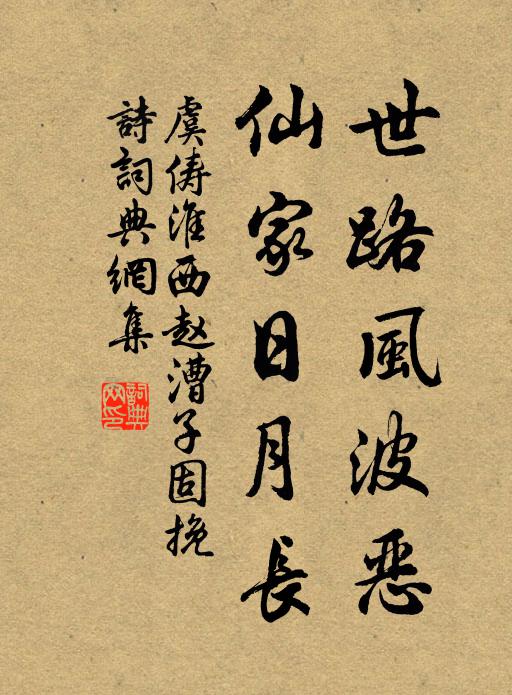 世路風波恶
仙家日月長
虞俦淮西赵漕子固挽
詩詞典網集
詞典
网印